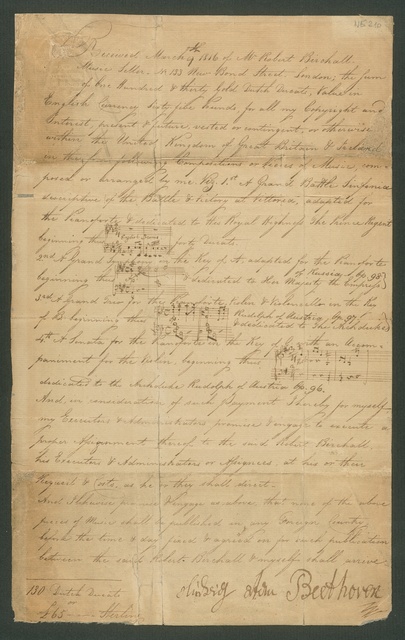 Received March 1816 of Mr Robert Birchall
Music Seller No 133 New Bond Street, London; the sum
of One Hundred & thirty Gold Dutch Ducats, Value in
English Currency Sixty five Pounds for all my Copyright and
Interest, present & future, vested or contingent, or otherwise
within the United Kingdom of Great Britain & Ireland
in the four following Compositions or Pieces of Music, com-
posed or arranged by me Viz. 1st A Grand Battle Sinfonia
descriptive of the Battle & Victory at Vittoria, adapted for
the Pianoforte & dedicated to his Royal Highness The Prince Regent
beginning thus
2nd A Grand the Key of A, adapted for the Pianoforte
of Russia, Op. 98
beginning thus & dedicated to Her Majesty the Empress
3rd A Grand Trio for the forte, Violin & Violoncello in the Key
Rudolph of Austria, Op. 97
of B beginning thus & dedicated to the Archduke
4th A Sonata for the Pianoforte in the Key of G with an Accom-
paniment for the Violin, beginning thus
dedicated to the Archduke Rudolph of Austria Op. 96.
And, in consideration of such Payment I hereby for myself
my Executors & Administrators promise & engage to execute a
proper Assignment thereof to the said Robert Birchall
his Executors & Administrators or Assignees at his or their
Request & Costs, as he or they shall direct.
And I likewise promise & engage as above, that none of the above
pieces of Music shall be published in any Foreign Country,
before the time & day fixed & agreed on for such publication
between the said Robert Birchall & myself shall arrive.
130 Dutch Ducats
£65 Sterling
Ludwig van Beethoven